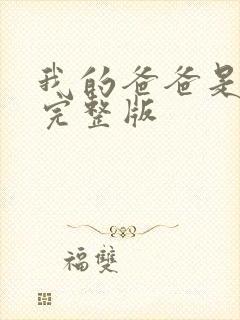 我的爸爸是
完整版
福雙